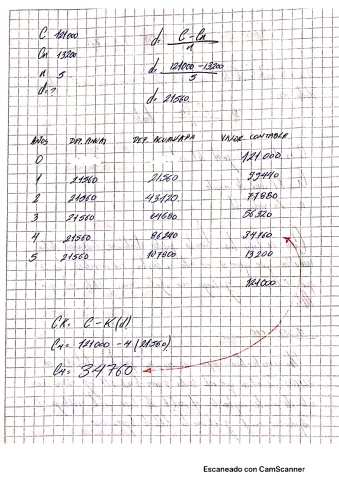 C 121000
Cn 13200
n 5
d = ?
d = C - Cn
n
d = 121000 - 13200
5
d = 21560
AÑOS DEP. ANUAL DEP. ACUMULADA VALOR CONTABLE
0 121000
1 21560 21560 99440
2 21560 43120 77880
3 21560 64680 56320
4 21560 86240 34760
5 21560 107800 13200
121000
CK = C - K(d)
C4 = 121000 - 4 (21560)
C4 = 34760
Escaneado con CamScanner